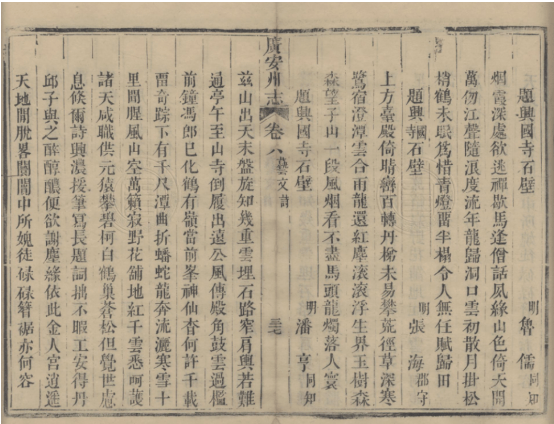 題興國寺石壁
明 魯儒 同知
烟霞深處欲逃禪歇馬逢僧話夙緣山色倚天開
萬仞江聲隨浪度流年龍歸洞口雲初散月掛松
梢鶴未眠爲惜青燈留半榻令人無任賦歸田
題興國寺石壁
明 張海 郡守
上方臺殿倚晴巒百轉丹梯未易攀荒徑草深寒
鷺宿澄潭雲合雨龍還紅塵滾滾浮生界玉樹森
森望子山一段風烟看不盡馬頭龍燭落人寰
題興國寺石壁
明 潘亨 同知
廣安州志 卷八 藝文 詩
兹山出天末盤旋知幾重雲埋石路窄肩輿若難
通亭午至山寺倒履出遠公風傳殿角鼓雲過檻
前鐘馮郎已化鶴有嶺當前峯神仙杳何許千載
畱奇踪下有千尺潭曲折蟠蛇龍奔流灑寒雪十
里聞腥風山空萬籟寂野花舖地紅千雲悉呵護
諸天咸職供元猿攀碧柯白鶴巢蒼松但覺世慮
息倐爾詩興濃援筆寫長題詞拙不暇工安得丹
邱子與之醉醇醲便欲謝塵緣依此金人宮逍遙
天地開脫畧闤闠中所婉徒碌碌簪裾亦何容